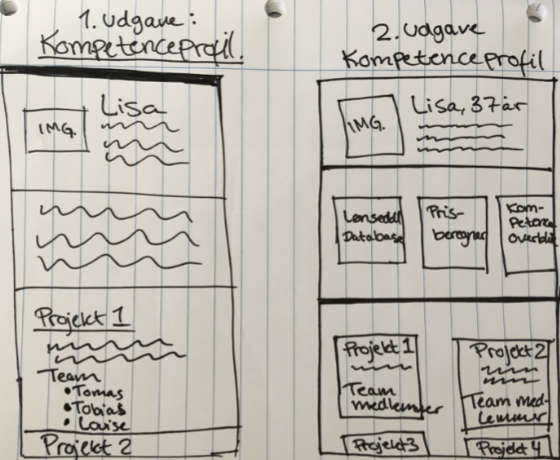 1. Udgave:
Kompetenceprofil.
IMG.
Lisa
Projekt 1
Team
• Tomas
• Tobias
• Louise
Projekt 2
2. Udgave
Kompetenceprofil
IMG.
Lisa, 37 år
Database
Pris-
beregner
Kom-
Petence
overblik
Projekt 1
Team
medlemmer
Projekt 2
Team med-
lemmer
Projekt3
Projekt 4